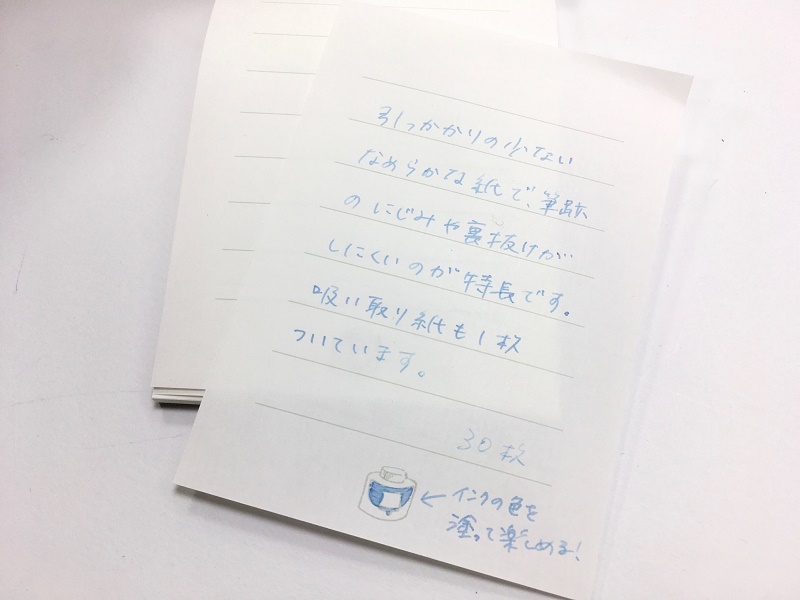 引っかかりの少ない
なめらかな紙で、筆跡
のにじみや裏抜けが
しにくいのが特長です。
吸い取り紙も1枚
ついています。
30枚
←インクの色を
塗って楽しめる!